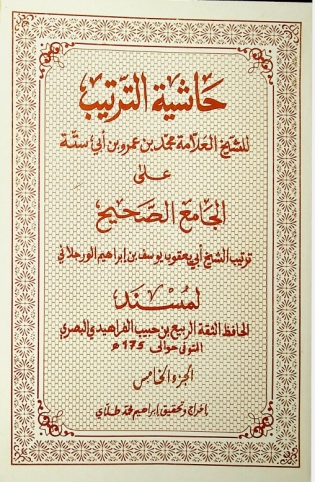 حاشية الترتيب
للشيخ العلامة محمد بن عمرو بن أبي ستة
على
الجامع الصحيح
ترتيب الشيخ أبي يعقوب يوسف بن إبراهيم الورجلاني
لمسند
الحافظ الثقة الربيع بن حبيب الفراهيدي البصري
المتوفى حوالى 175 هـ
الجزء الخامس
إخراج وتحقيق إبراهيم محمد طلاي